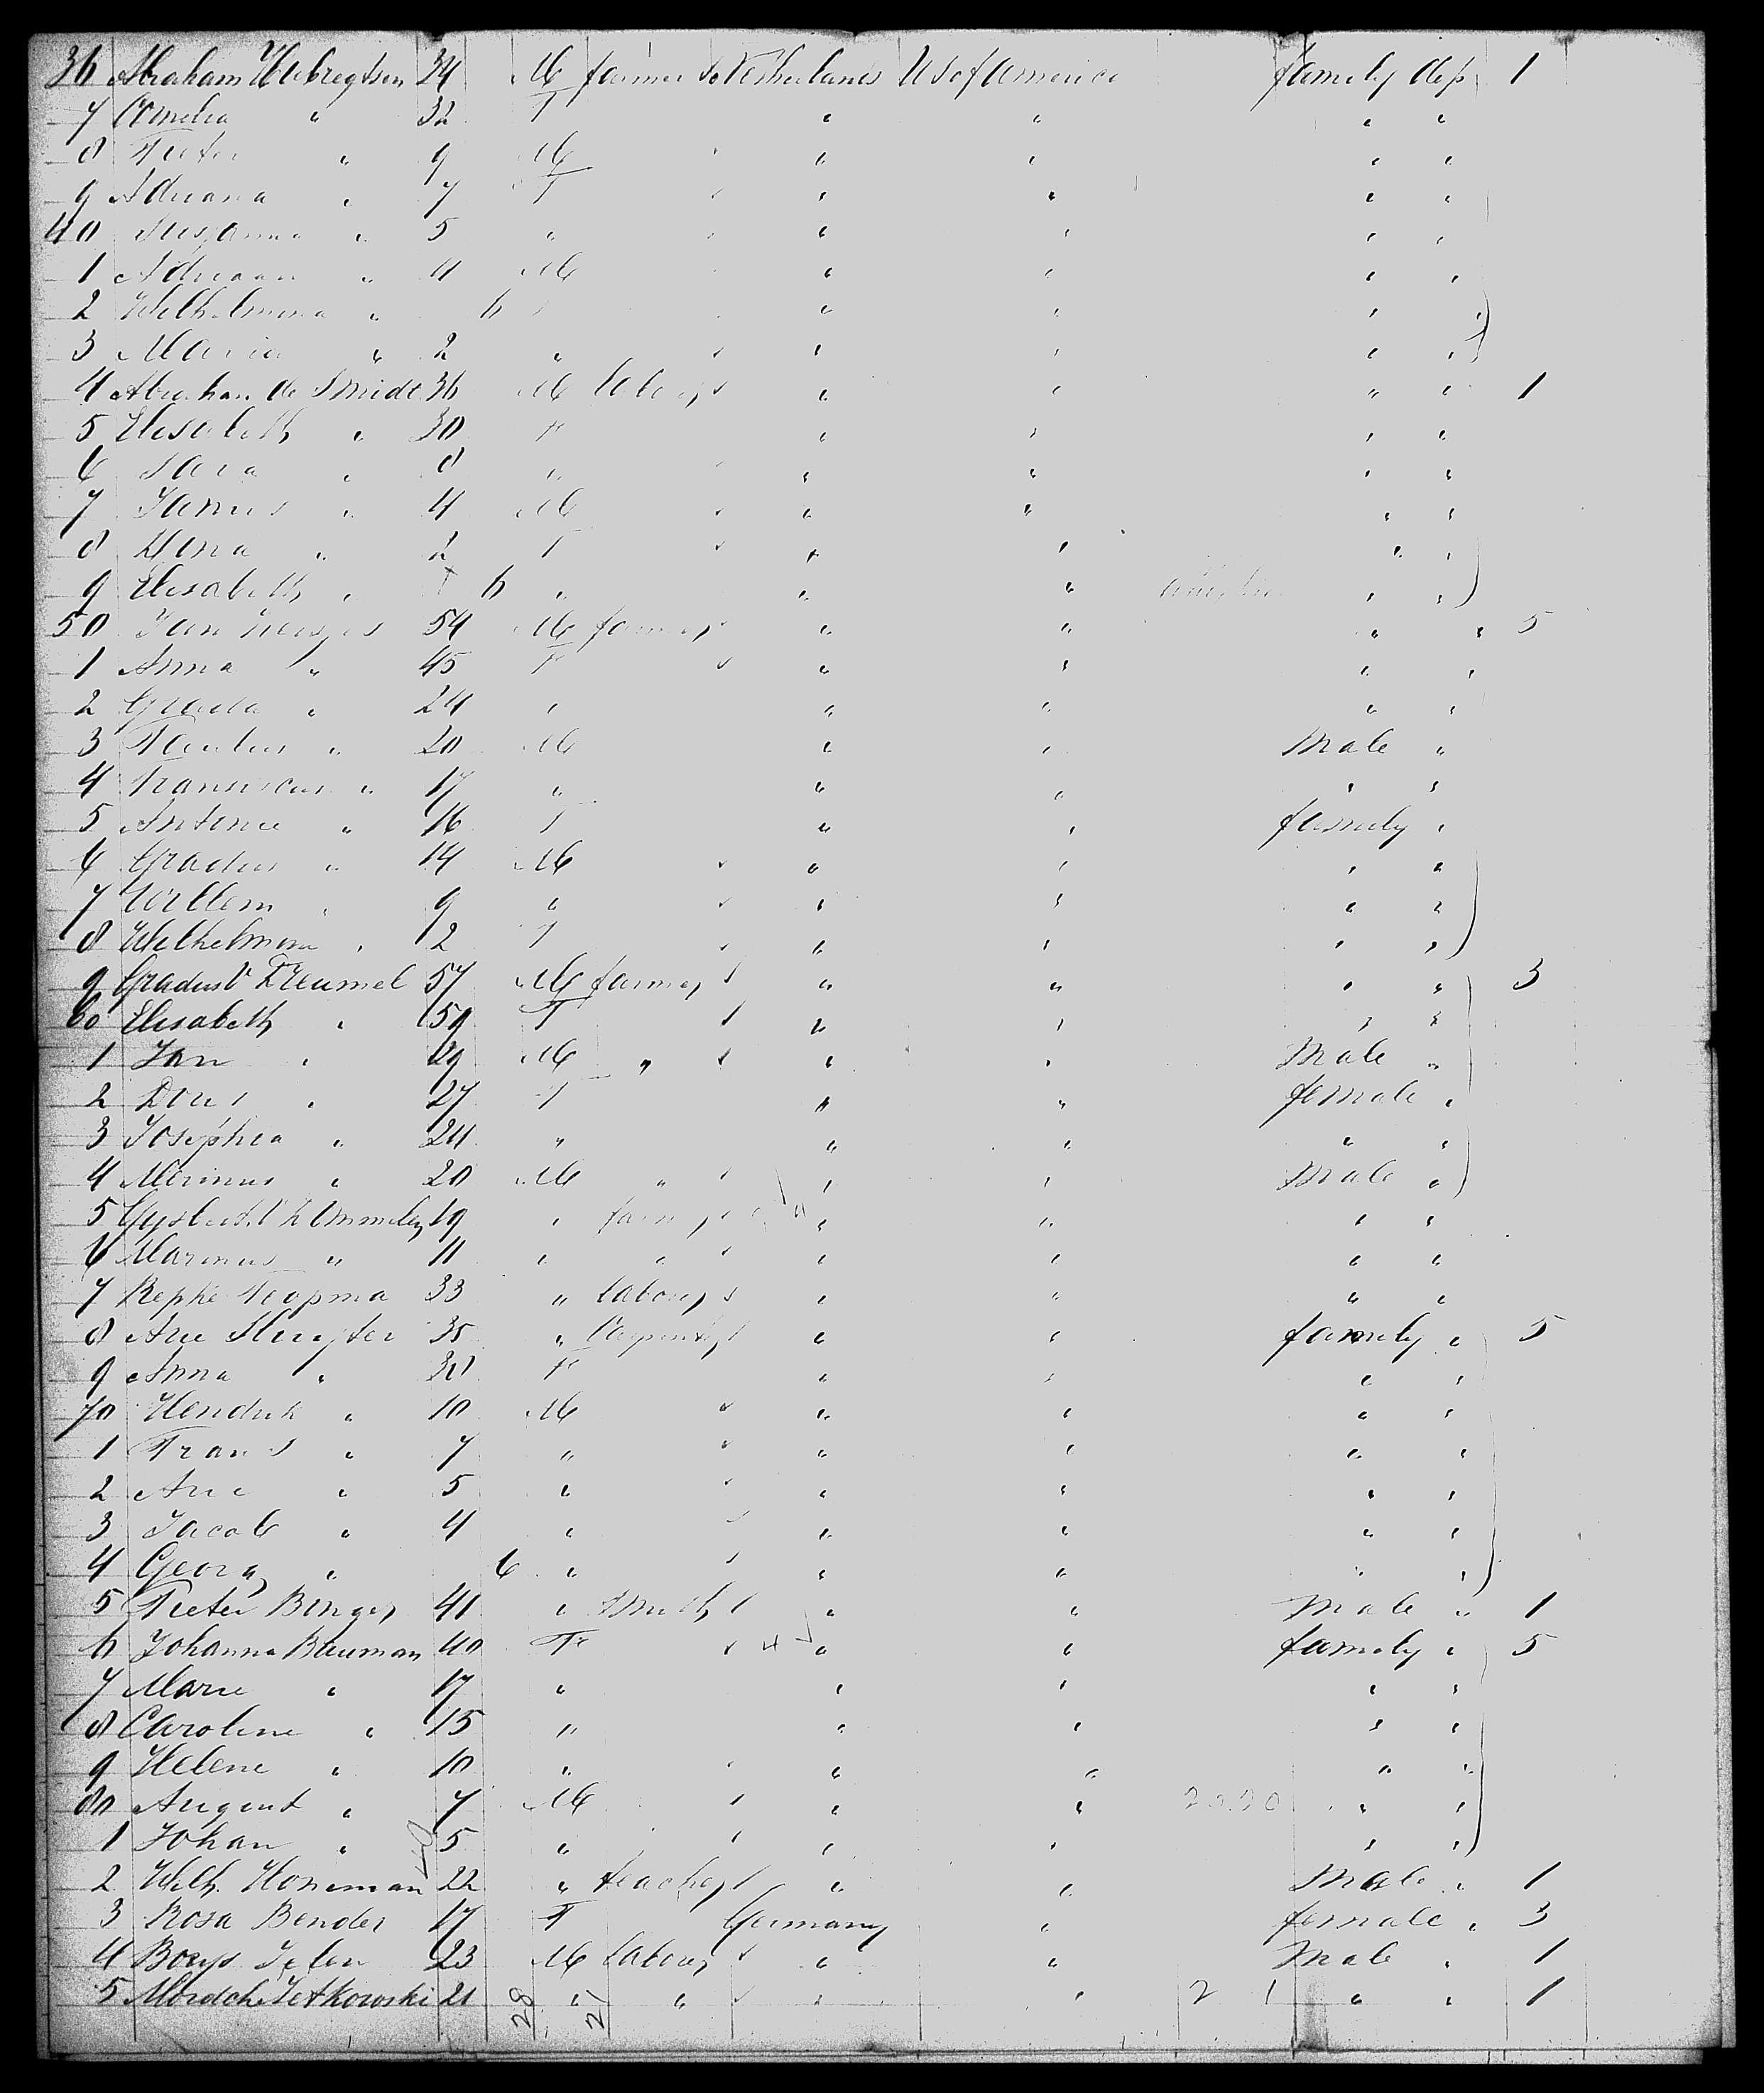 36 Abraham Huibregtsen 34 M farmer Netherlands US of America family dep 1
7 Cornelia " 32 F " " " "
8 Pieter " 9 M " " " "
9 Adriana " 7 F " " " "
40 Susanna " 5 " " " " "
1 Adriaan " 4 M " " " "
2 Wilhelmina " 6 " " " "
3 Maria " 2 " " " " "
4 Abraham de Smidt 36 M labour " " " " 1
5 Elisabeth " 30 F " " " "
6 Sara " 8 " " " " "
7 Janus " 4 M " " " "
8 Dina " 2 F " " " "
9 Elisabeth " 6 " " " " "
50 Jan 54 M farmer " " " " 5
1 Anna " 45 F " " " "
2 Grada " 24 " " " " "
3 Paulus " 20 M " " Male "
4 Fransiscus " 17 " " " " "
5 Antonie " 16 F " " family "
6 Gradus " 14 M " " " "
7 Willem " 9 " " " " "
8 Wilhelmina " 2 F " " " "
9 Gradus V Dreumel 57 M farmer " " " " 3
60 Elisabeth " 59 F " " " "
1 Jan " 29 M " " " Male "
2 Dora " 27 F " " female "
3 Josephia " 24 " " " " "
4 Marinus " 20 M " " " Male "
5 Gysbert V 19 " farmer " " " "
6 Marinus " 11 " " " " " "
7 Repke Koopma 33 " labour " " " "
8 Arie Sluyter 35 " Carpenter " " family " 5
9 Anna " 30 F " " " "
70 Hendrik " 10 M " " " "
1 Frans " 7 " " " " "
2 Arie " 5 " " " " "
3 Jacob " 4 " " " " "
4 Georg " 6 " " " " "
5 Pieter Binger 41 " smith " " Male " 1
6 Johanna Bauman 40 F " " family " 5
7 Marie " 17 " " " " "
8 Caroline " 15 " " " " "
9 Helene " 10 " " " " "
80 August " 7 M " " " "
1 Johan " 5 " " " " "
2 Wilh. Honeman 22 " teacher " " Male " 1
3 Rosa Bender 17 F Germany " female " 3
4 23 M labour " " Male " 1
5 Mordch Jetkowski 21 " " " " 2 1 " " 1
28 21